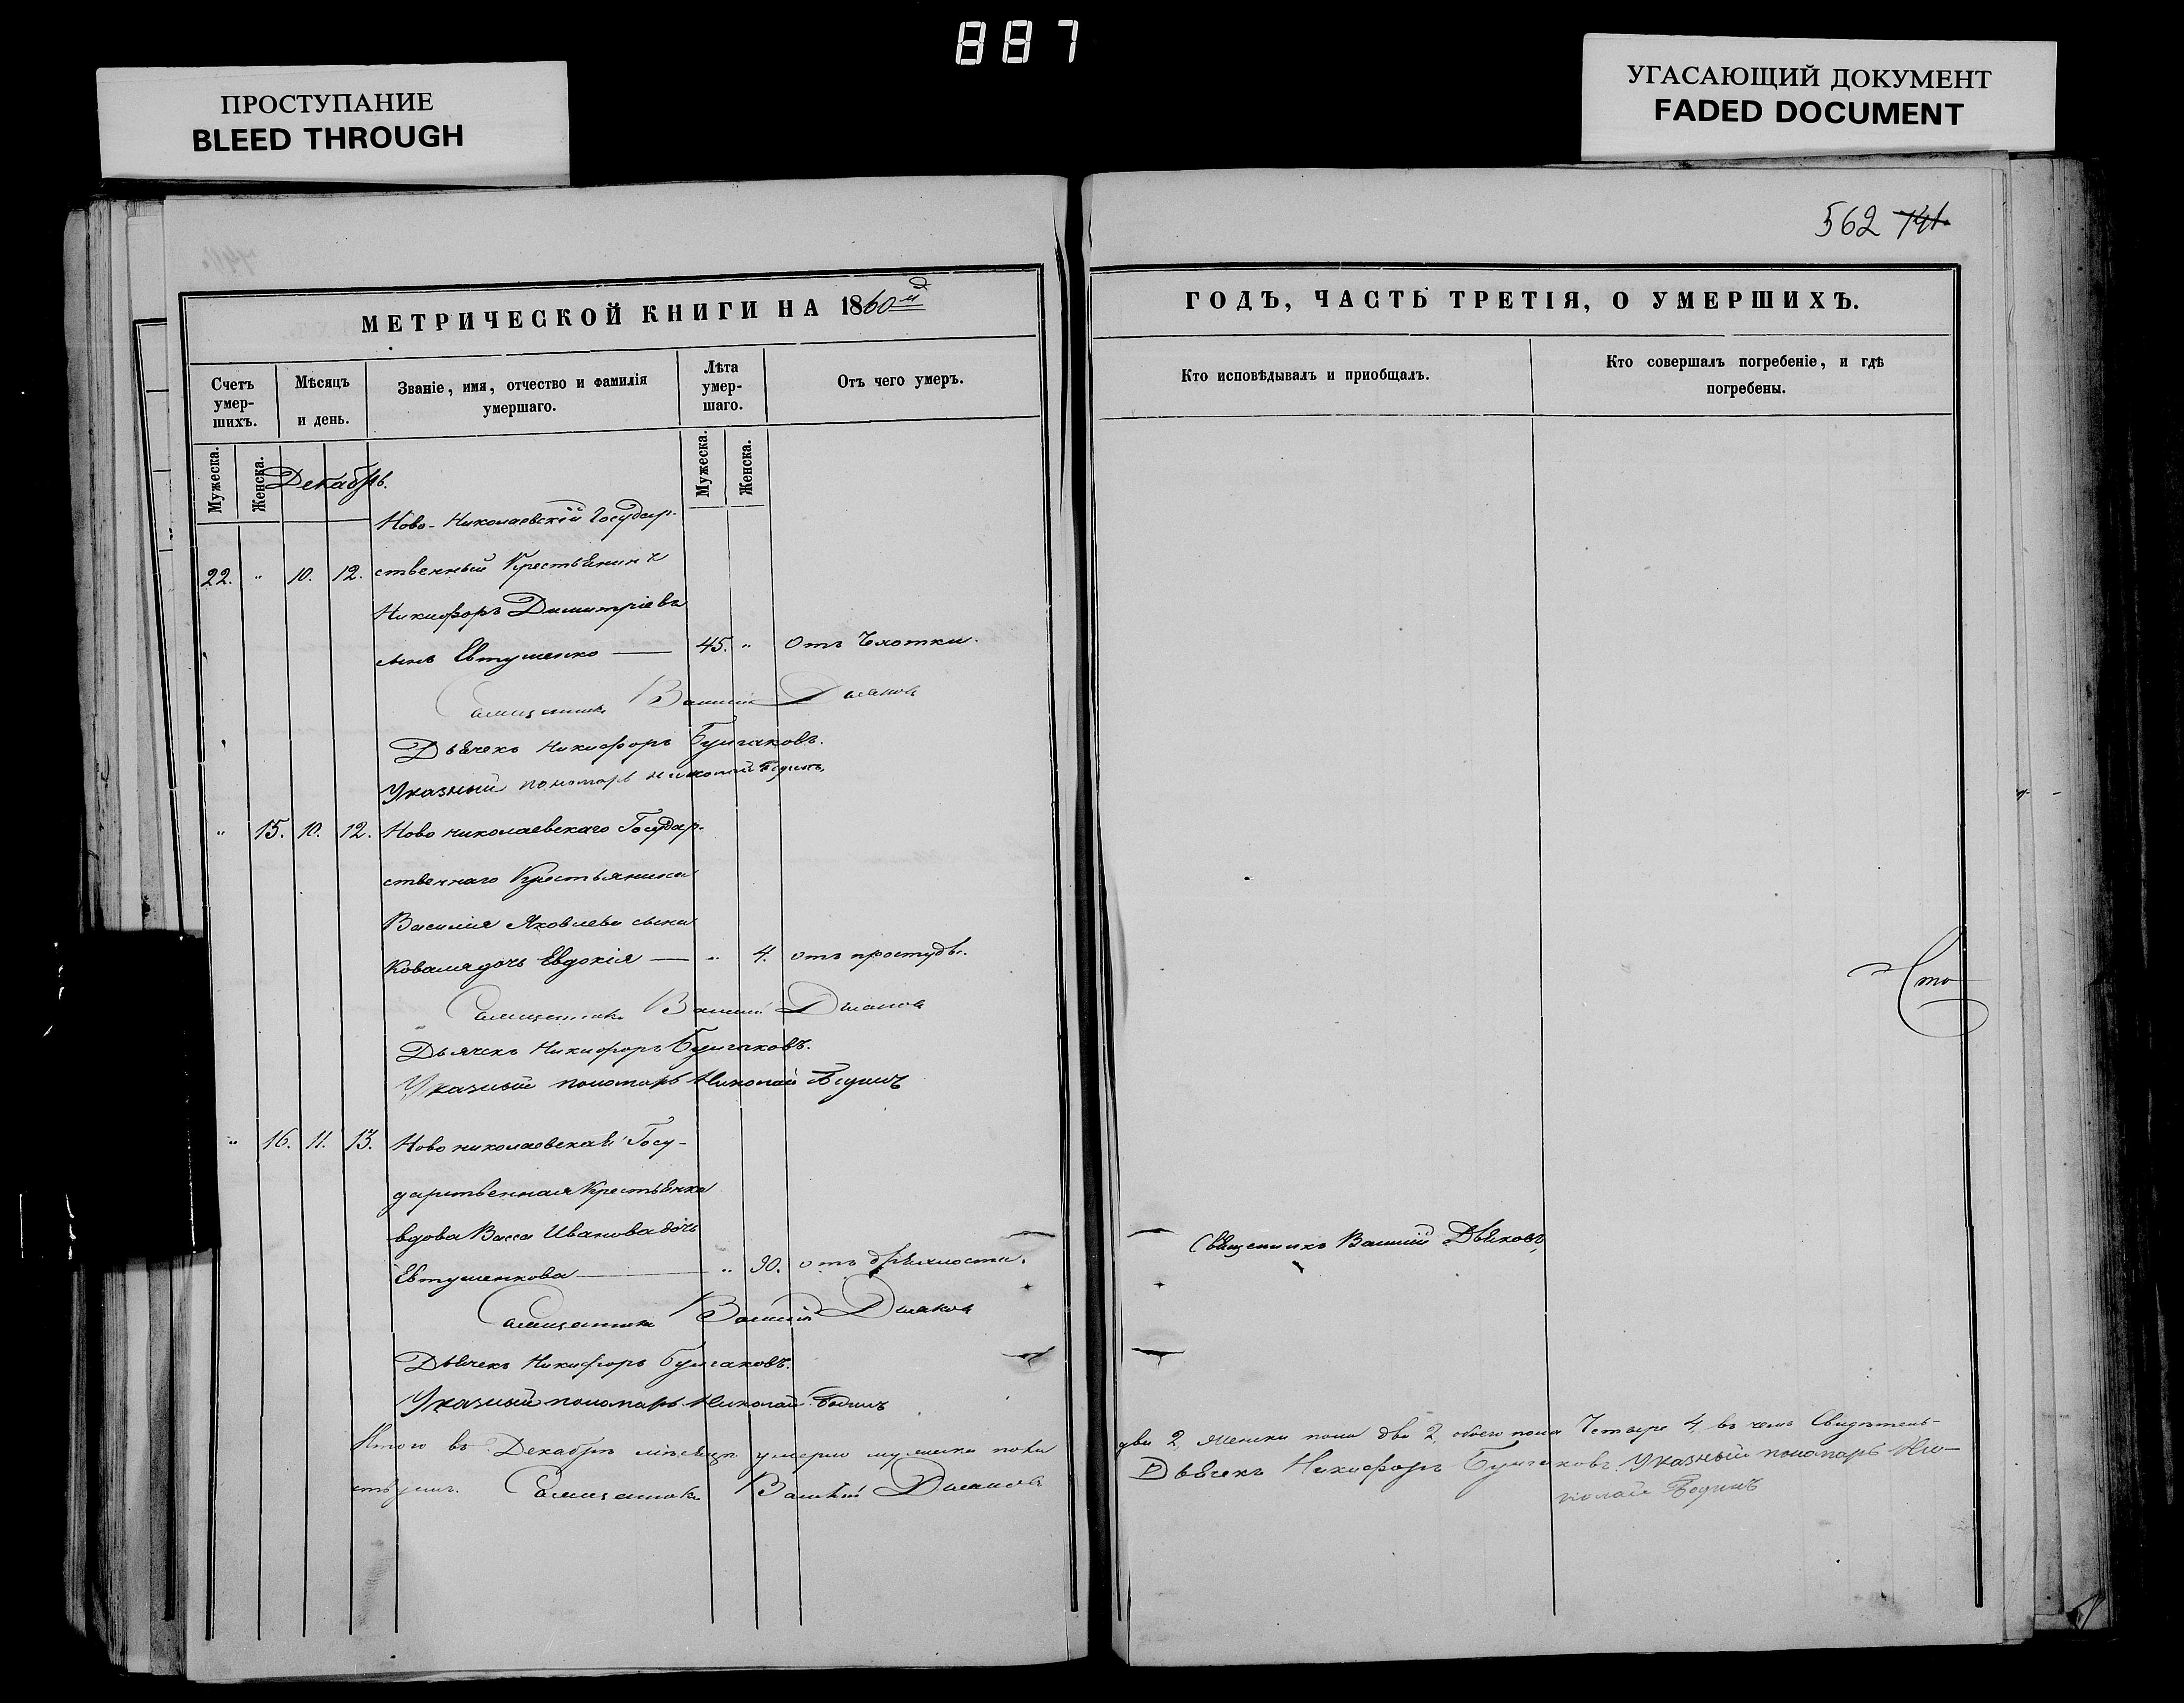 887
ПРОСТУПАНИЕ
BLEED THROUGH
УГАСАЮЩИЙ ДОКУМЕНТ
FADED DOCUMENT
562 141.
МЕТРИЧЕСКОЙ КНИГИ НА 1860й
Счетъ умер-шихъ.
Мѣсяцъ и день.
Званіе, имя, отчество и фамилія умершаго.
Лѣта умер-шаго.
Отъ чего умеръ.
Мужеска.
Женска.
Декабрь.
Мужеска.
Женска.
Ново-Николаевскій Государ-
22. " 10. 12. ственный Крестьянинъ
Никифоръ Димитріевъ
сынъ Евтушенко — 45. " Отъ Чахотки.
Священникъ Василій Дьяковъ
Дьячекъ Никифоръ Булгаковъ.
Указный пономарь Николай
" 15. 10. 12. Ново николаевскаго Государ-
ственнаго Крестьянина
Василія Яковлева сына
Коваля дочь Евдокія — " 4. отъ простуды.
Священникъ Василій Дьяковъ
Дьячекъ Никифоръ Булгаковъ.
Указный пономарь Николай
" 16. 11. 13. Ново николаевская Госу-
дарственная Крестьянка
вдова Васса Иванова дочь
Евтушенкова — " 90. отъ дряхлости.
Священникъ Василій Дьяковъ
Дьячекъ Никифоръ Булгаковъ.
Указный пономарь Николай
Итого въ Декабрѣ мѣсяцѣ умерло мужеска пола
ствуемъ. Священникъ Василій Дьяковъ
ГОДЪ, ЧАСТЬ ТРЕТІЯ, О УМЕРШИХЪ.
Кто исповѣдывалъ и пріобщалъ.
Кто совершалъ погребеніе, и гдѣ погребены.
Сто
Священникъ Василій Дьяковъ,
два 2, женска пола два 2, обоего пола Четыре 4, въ чемъ Свидѣтель-
Дьячекъ Никифоръ Булгаковъ. Указный пономарь Ни-
колай